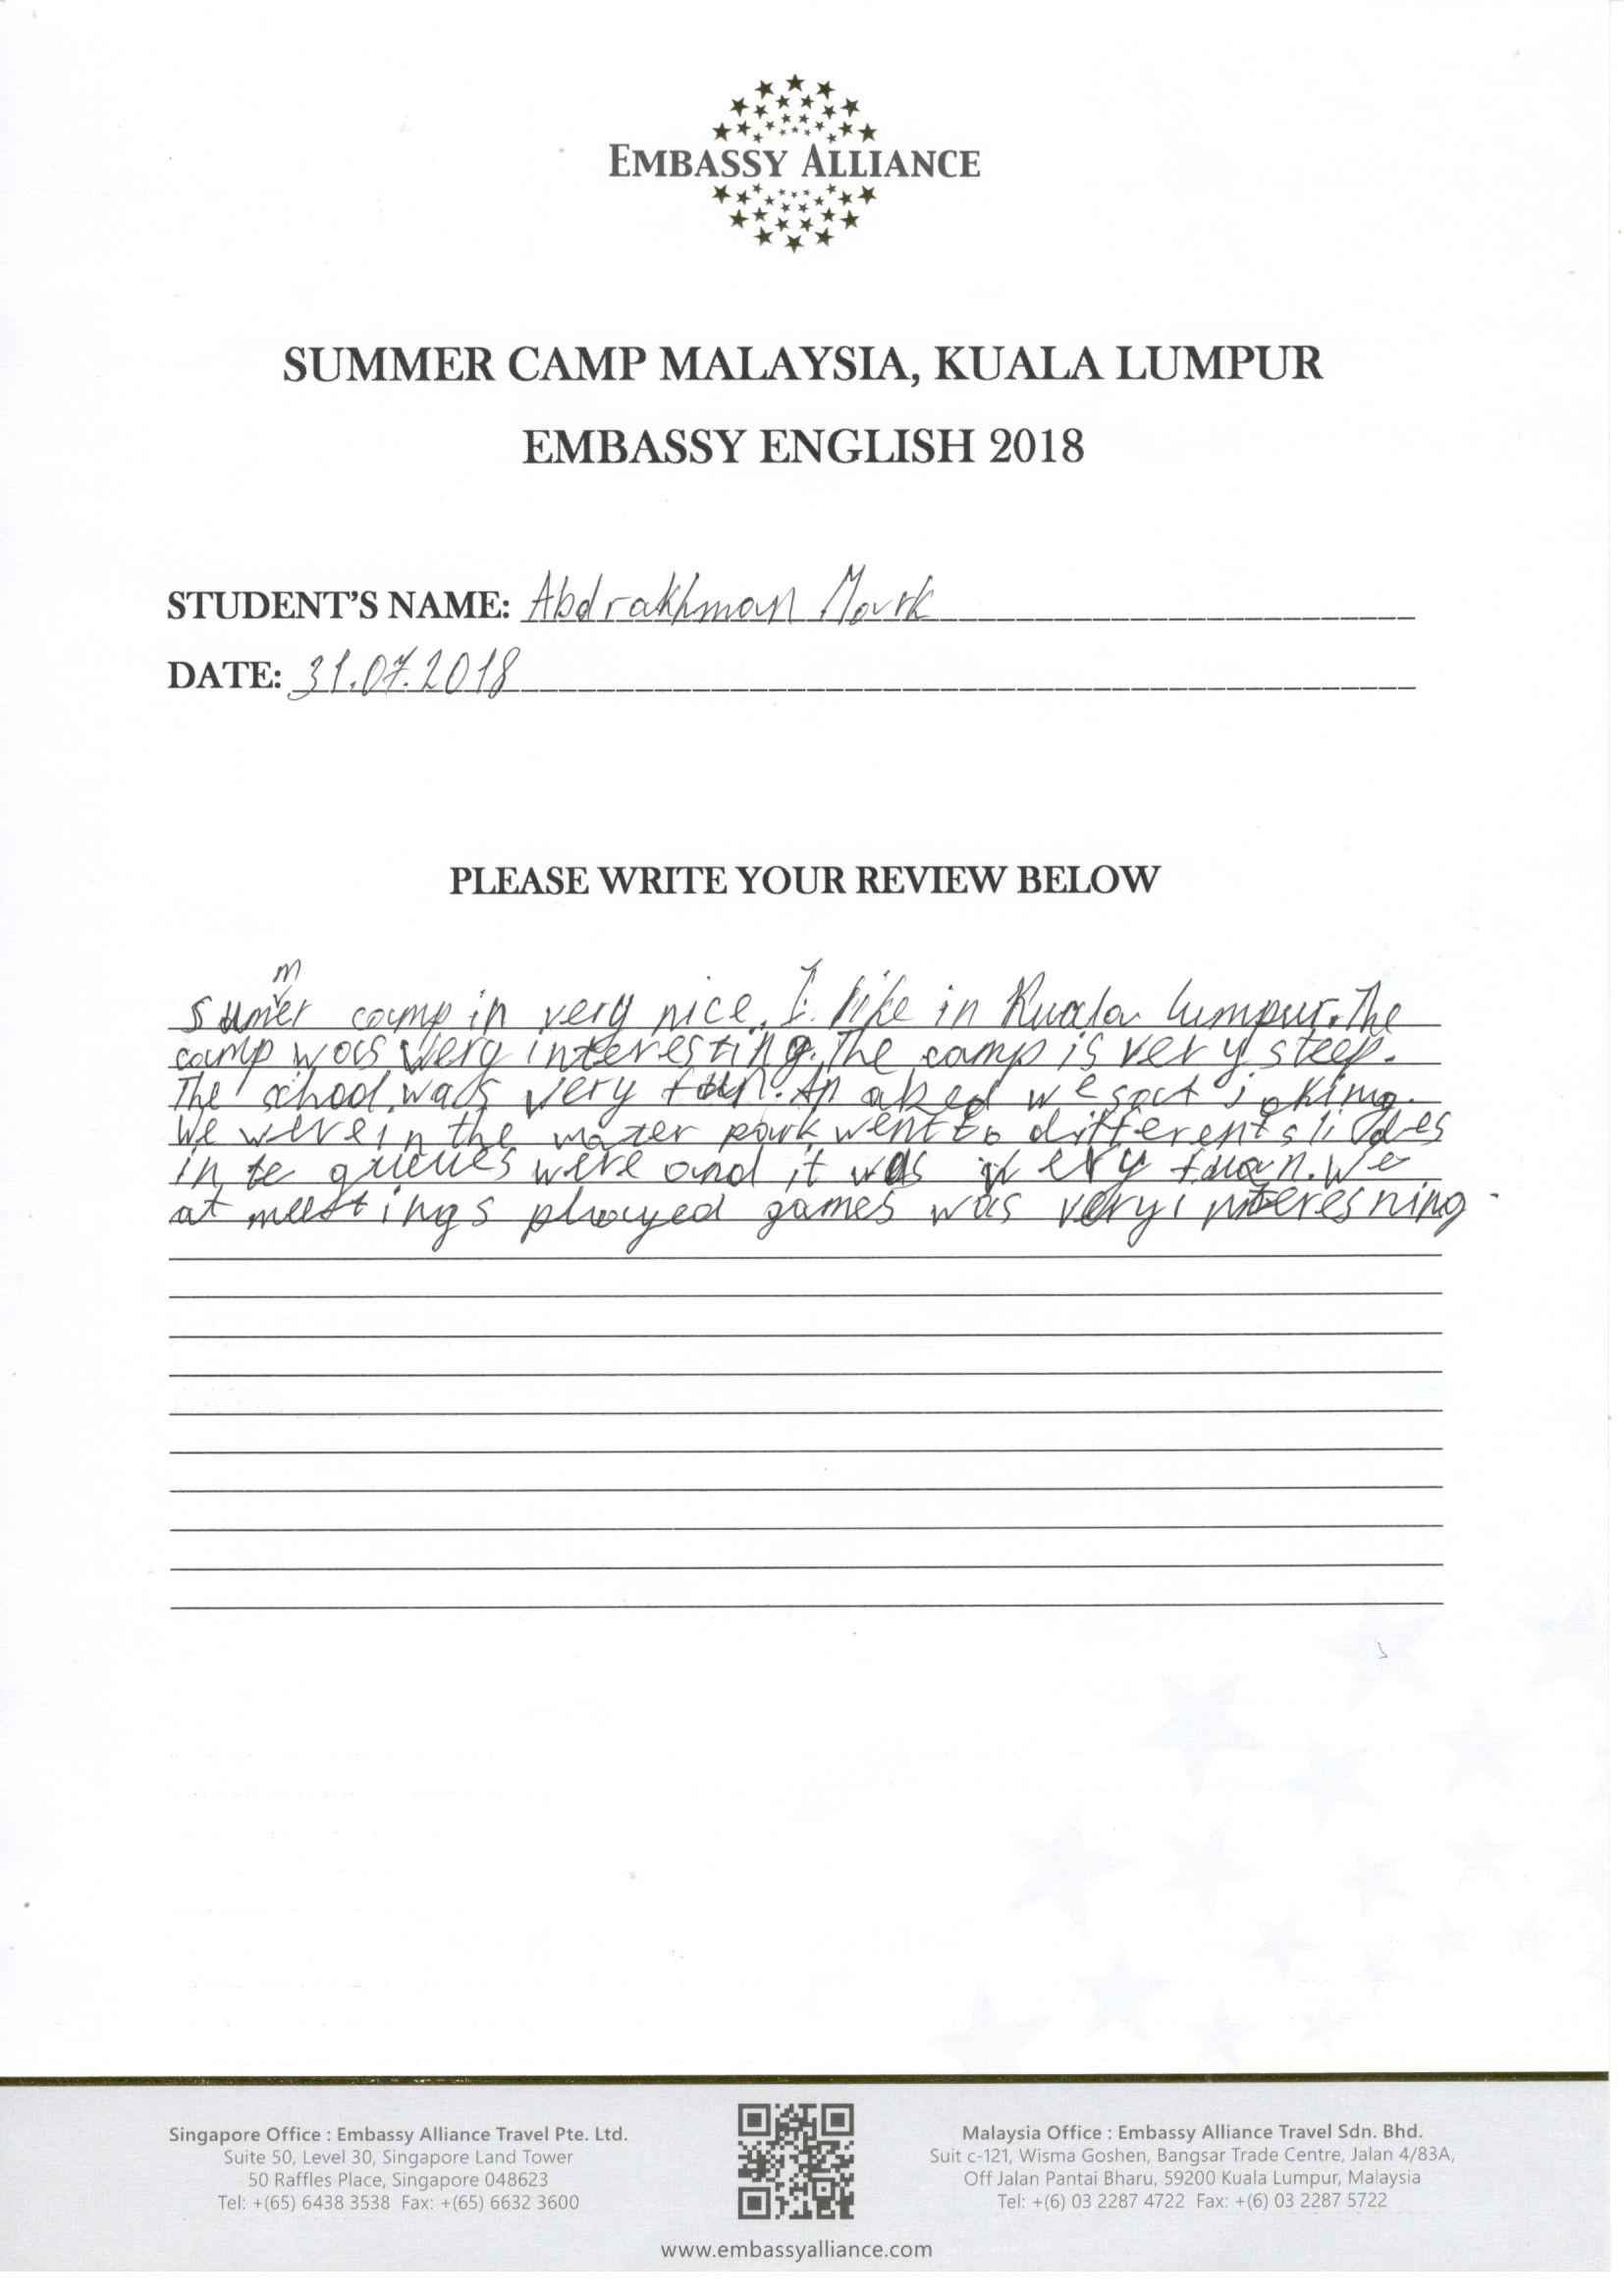 EMBASSY ALLIANCE
SUMMER CAMP MALAYSIA, KUALA LUMPUR
EMBASSY ENGLISH 2018
STUDENT'S NAME: Abdrakhman Mark
DATE: 31.07.2018
PLEASE WRITE YOUR REVIEW BELOW
Summer camp in very nice. I like in Kuala lumpur. The
camp was very interesting. The camp is very steep.
The school was very fun. An aked we sat joking.
We were in the water park went to different slides
in te queues were and it was very fuan. We
at meetings played games was very interesning.
Singapore Office : Embassy Alliance Travel Pte. Ltd.
Suite 50, Level 30, Singapore Land Tower
50 Raffles Place, Singapore 048623
Tel: +(65) 6438 3538 Fax: +(65) 6632 3600
Malaysia Office : Embassy Alliance Travel Sdn. Bhd.
Suit c-121, Wisma Goshen, Bangsar Trade Centre, Jalan 4/83A,
Off Jalan Pantai Bharu, 59200 Kuala Lumpur, Malaysia
Tel: +(6) 03 2287 4722 Fax: +(6) 03 2287 5722
www.embassyalliance.com